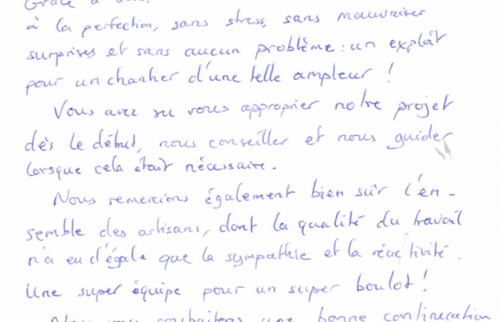 Grâce à
à la perfection, sans stress, sans mauvaises
surprises et sans aucun problème : un exploit
pour un chantier d'une telle ampleur !
Vous avez su vous approprier notre projet
dès le début, nous conseiller et nous guider
lorsque cela était nécessaire.
Nous remercions également bien sûr l'en-
semble des artisans, dont la qualité du travail
n'a eu d'égale que la sympathie et la réactivité.
Une super équipe pour un super boulot !
Nous vous souhaitons une bonne continuation